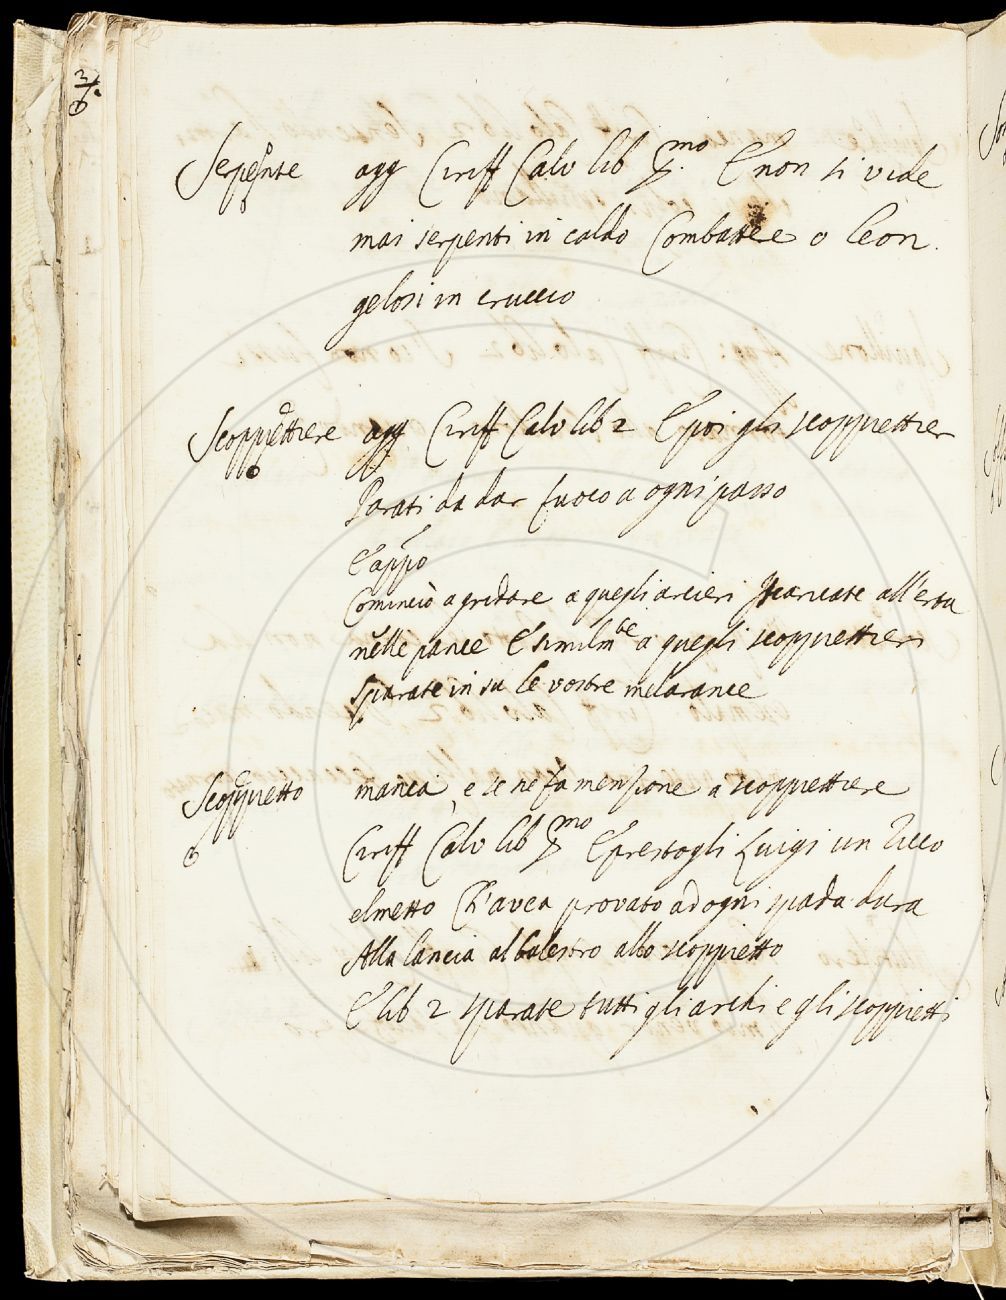 Serpente agg Ciriff Calv lib pmo E non si vide
mai serpenti in caldo Combattere o leon
gelosi in cruccio
Scoppiettiere agg Ciriff Calv lib 2 E poi gli scoppiettier
Parati da dar fuoco a ogni passo
E appo
Cominciò a gridare a quegli arcieri scaricate all'erta
nelle pance E similmte a quegli scoppiettieri
sparate in su le vostre melarance
Scoppietto manca, e se ne fa menzione a scoppiettiere
Ciriff Calv lib pmo E prestogli Luigi un ricco
elmetto Ch'avea provato ad ogni spada dura
Alla lancia al balestro allo scoppietto
E lib 2 sparate tutti gli archi e gli scoppietti